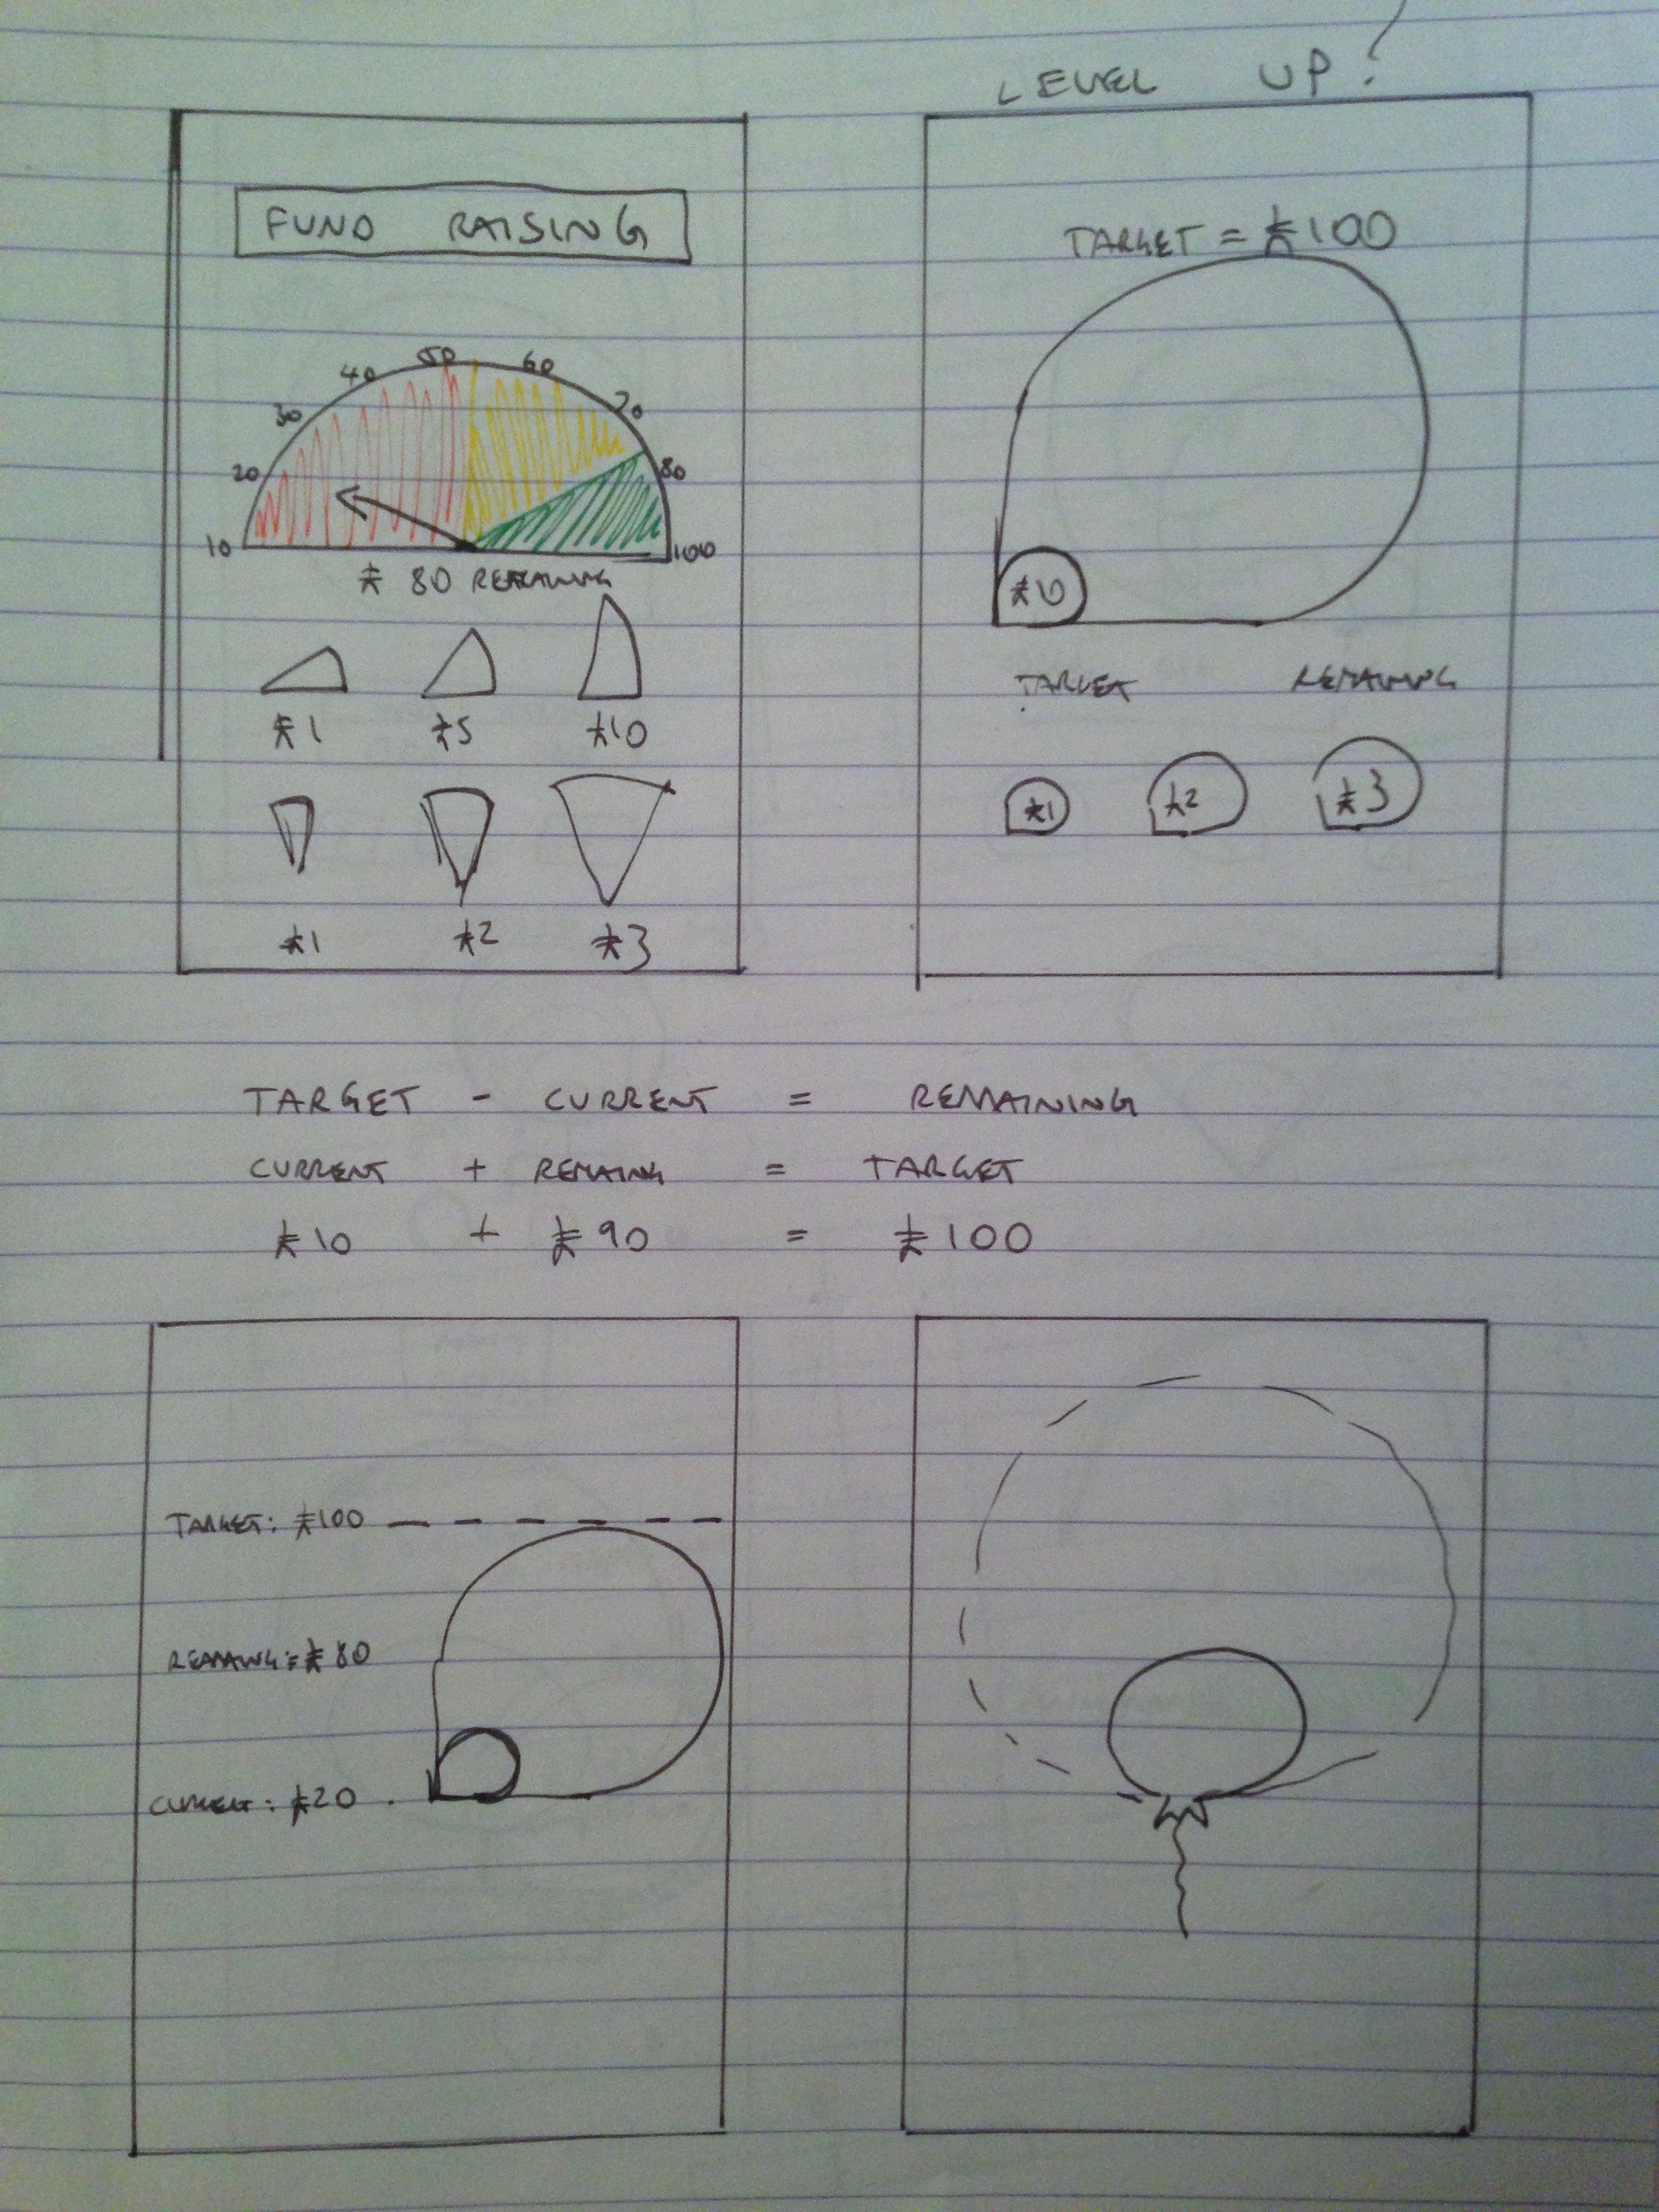 LEVEL UP?
FUND RAISING
50
40 60
30 70
20 80
10 100
£ 80 REMAINING
£1 £5 £10
£1 £2 £3
TARGET = £100
£10
TARGET REMAINING
£1 £2 £3
TARGET - CURRENT = REMAINING
CURRENT + REMAING = TARGET
£10 + £90 = £100
TARGET: £100
REMAING: £80
CURRENT: £20